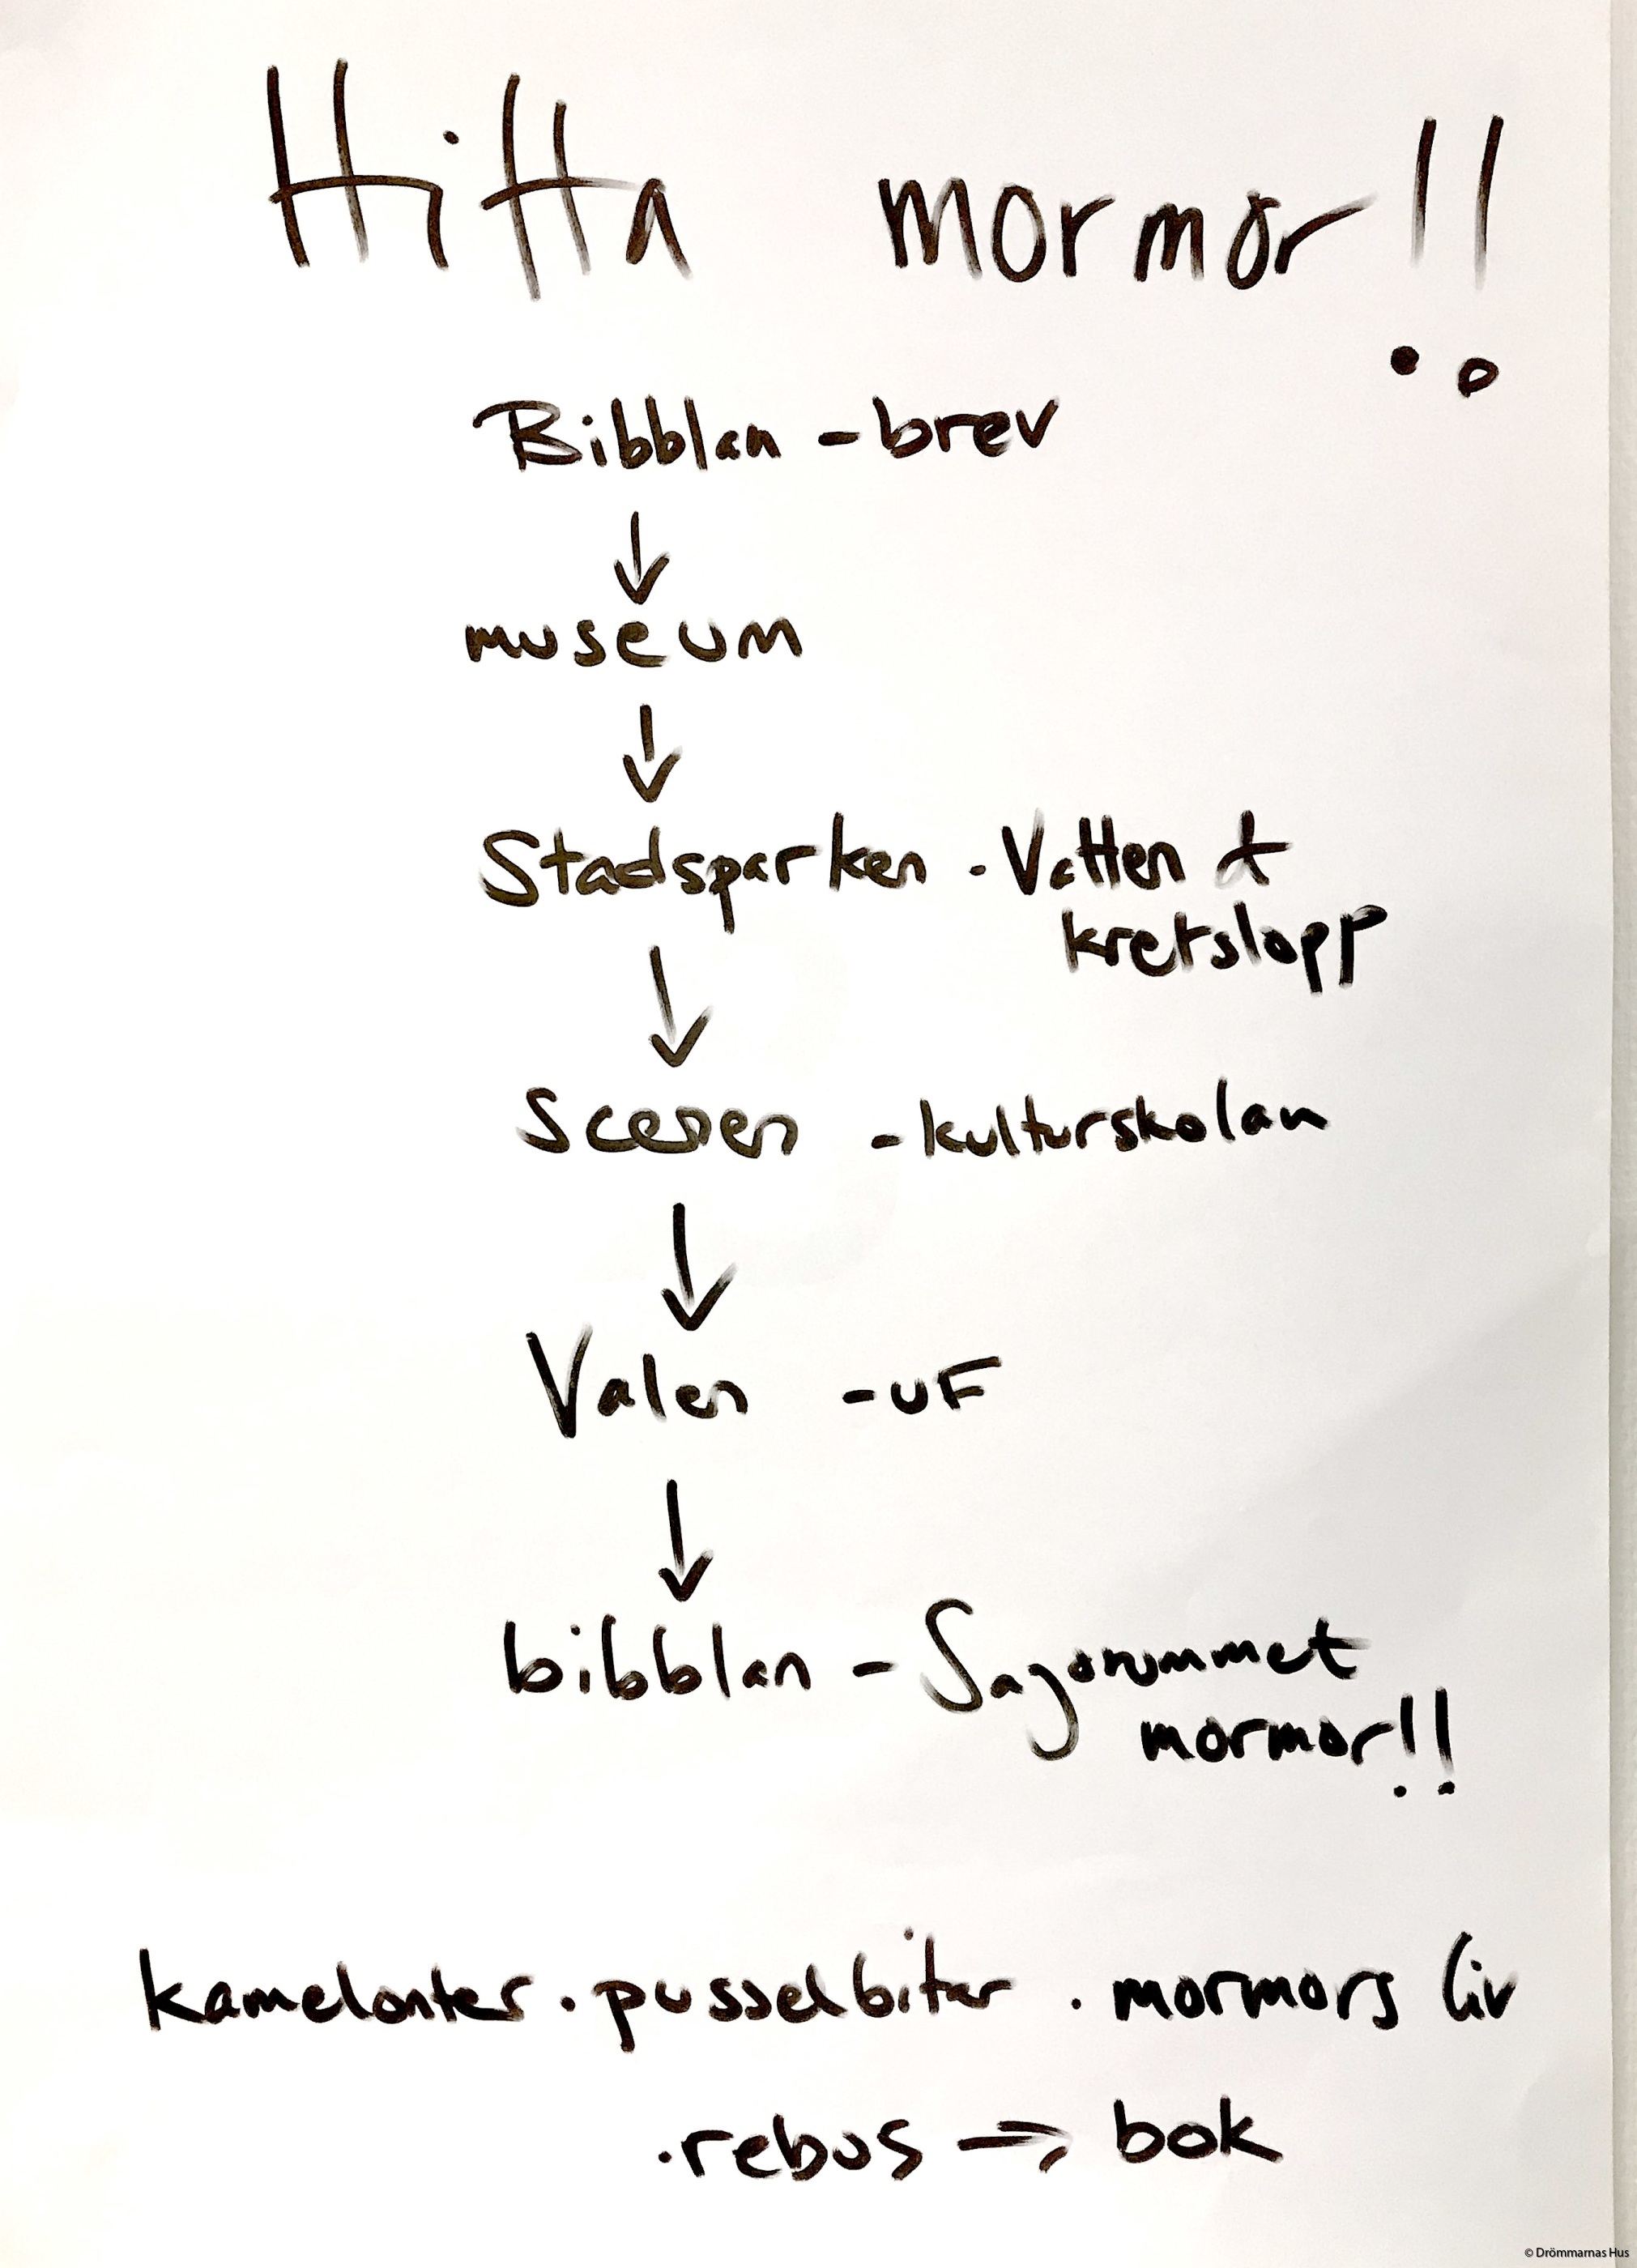 Hitta mormor!!
Bibblan - brev
↓
museum
↓
Stadsparken . Vatten &
kretslopp
↓
Scenen - kulturskolan
↓
Valen - UF
↓
bibblan - Sagorummet
mormor!!
kamelonter . pusselbitar . mormors liv
. rebus → bok
© Drömmarnas Hus